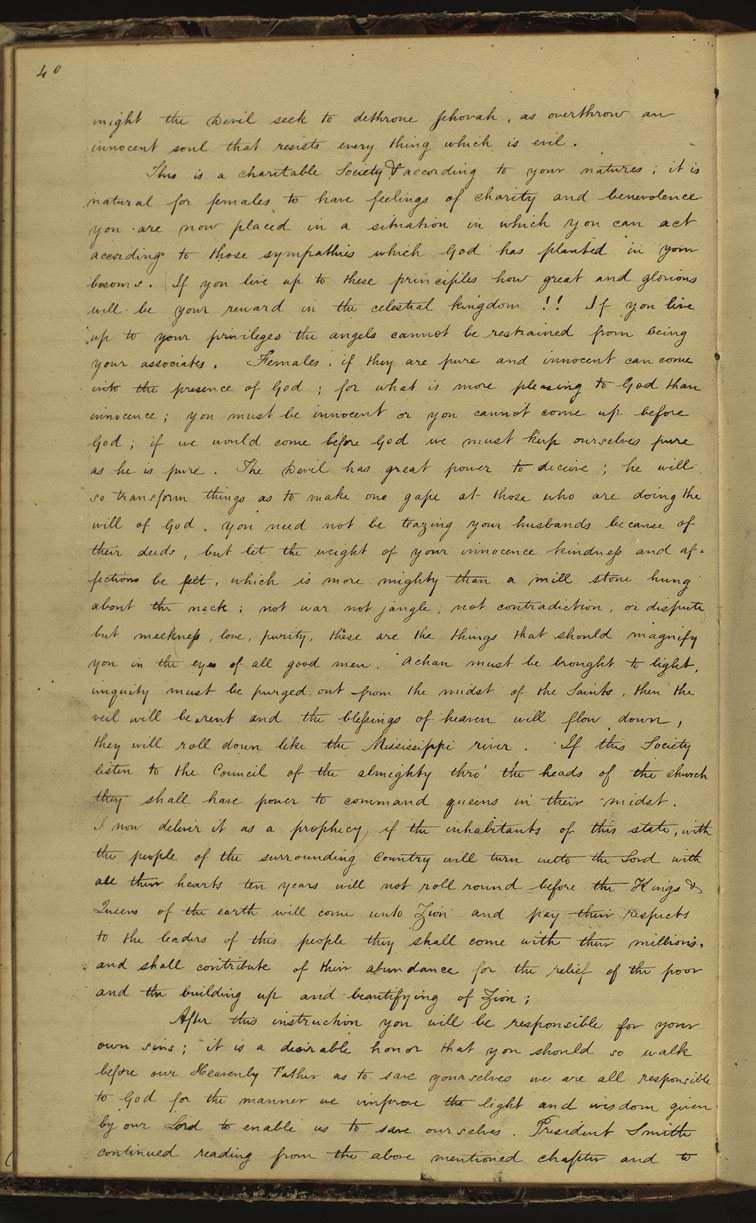 40
might the Devil seek to dethrone Jehovah, as overthrow an
innocent soul that resists every thing which is evil.
This is a charitable Society & according to your natures; it is
natural for females to have feelings of charity and benevolence
you are now placed in a situation in which you can act
according to those sympathies which God has planted in your
bosoms. If you live up to these principles how great and glorious
will be your reward in the celestial kingdom !! If you live
up to your privileges the angels cannot be restrained from being
your associates. Females, if they are pure and innocent can come
into the presence of God; for what is more pleasing to God than
innocence; you must be innocent or you cannot come up before
God; if we would come before God we must keep ourselves pure
as he is pure. The Devil has great power to decive; he will
so transform things as to make one gape at those who are doing the
will of God. you need not be teazing your husbands because of
their deeds, but let the weight of your innocence kindness and af=
fections be felt, which is more mighty than a mill stone hung
about the neck; not war not jangle, not contradiction, or dispute
but meekness, love, purity, these are the things that should magnify
you in the eyes of all good men. Achan must be brought to light,
iniquity must be purged out from the midst of the Saints, then the
veil will be rent and the blessings of heaven will flow down,
they will roll down like the Mississippi river. If this Society
listen to the Council of the almighty thro' the heads of the church
they shall have power to command queens in their midst.
I now deliver it as a prophecy if the inhabitants of this state, with
the people of the surrounding Country will turn unto the Lord with
all their hearts ten years will not roll round before the Kings &
Queens of the earth will come unto Zion and pay their respects
to the leaders of this people they shall come with their millions,
and shall contribute of their abundance for the relief of the poor
and the building up and beautifying of Zion;
After this instruction you will be responsible for your
own sins; it is a desirable honor that you should so walk
before our Heavenly Father as to save yourselves we are all responsible
to God for the manner we improve the light and wisdom given
by our Lord to enable us to save ourselves. President Smith
continued reading from the above mentioned chapter and to